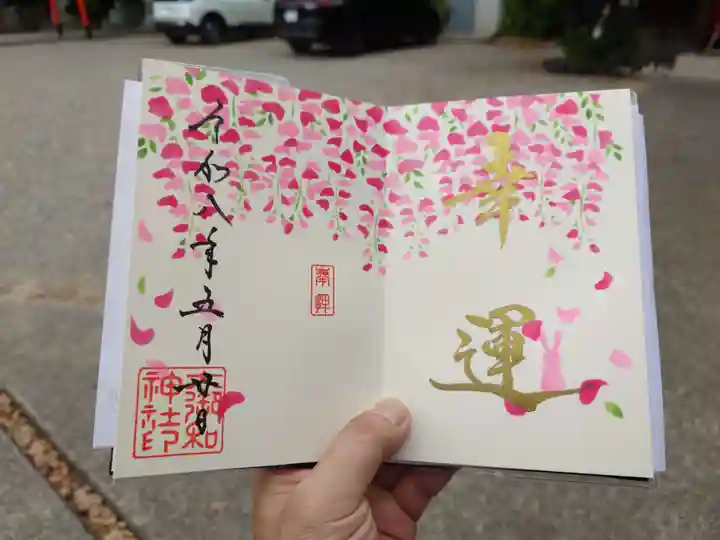 幸運
奉拝
令和八年五月廿日
御和神社